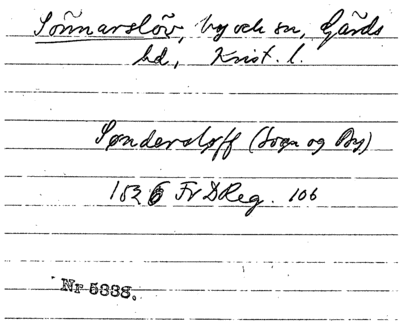 Sönnarslöv, by och sn, Gärds
hd, Krist. l.
Søndersløff (Sogn og By)
1526 Fr D Reg. 106
Nr 5338.